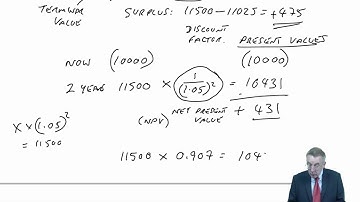 TERMINAL SURPLUS: 11500 – 11025 = +475
VALUE
DISCOUNT
FACTOR. PRESENT VALUES
NOW (10000) (10000)
2 YEARS 11500 × 1/(1.05)² = 10431
NET PRESENT + 431
(NPV) VALUE
X × (1.05)²
= 11500
11500 × 0.907 = 104